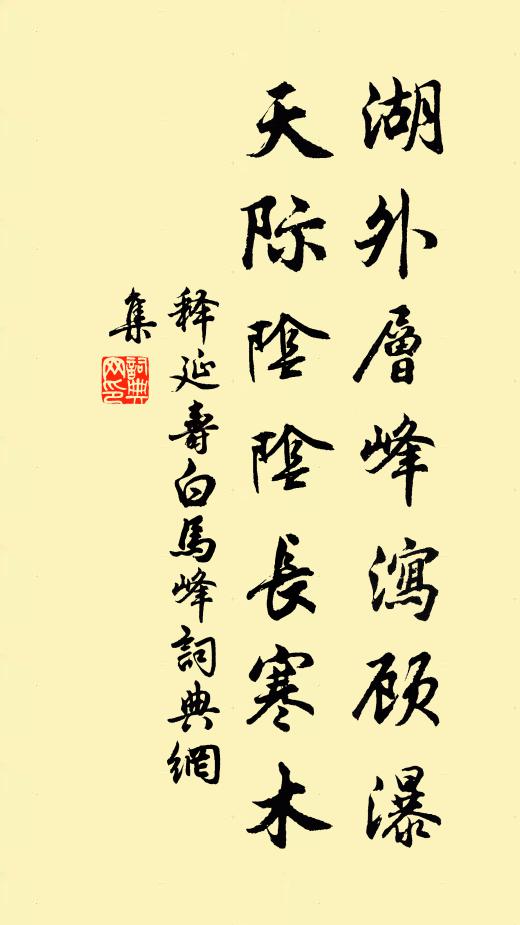 湖外層峰瀉顾瀑
天际陰陰長寒木
释延壽白馬峰詞典網
集
詞典网印